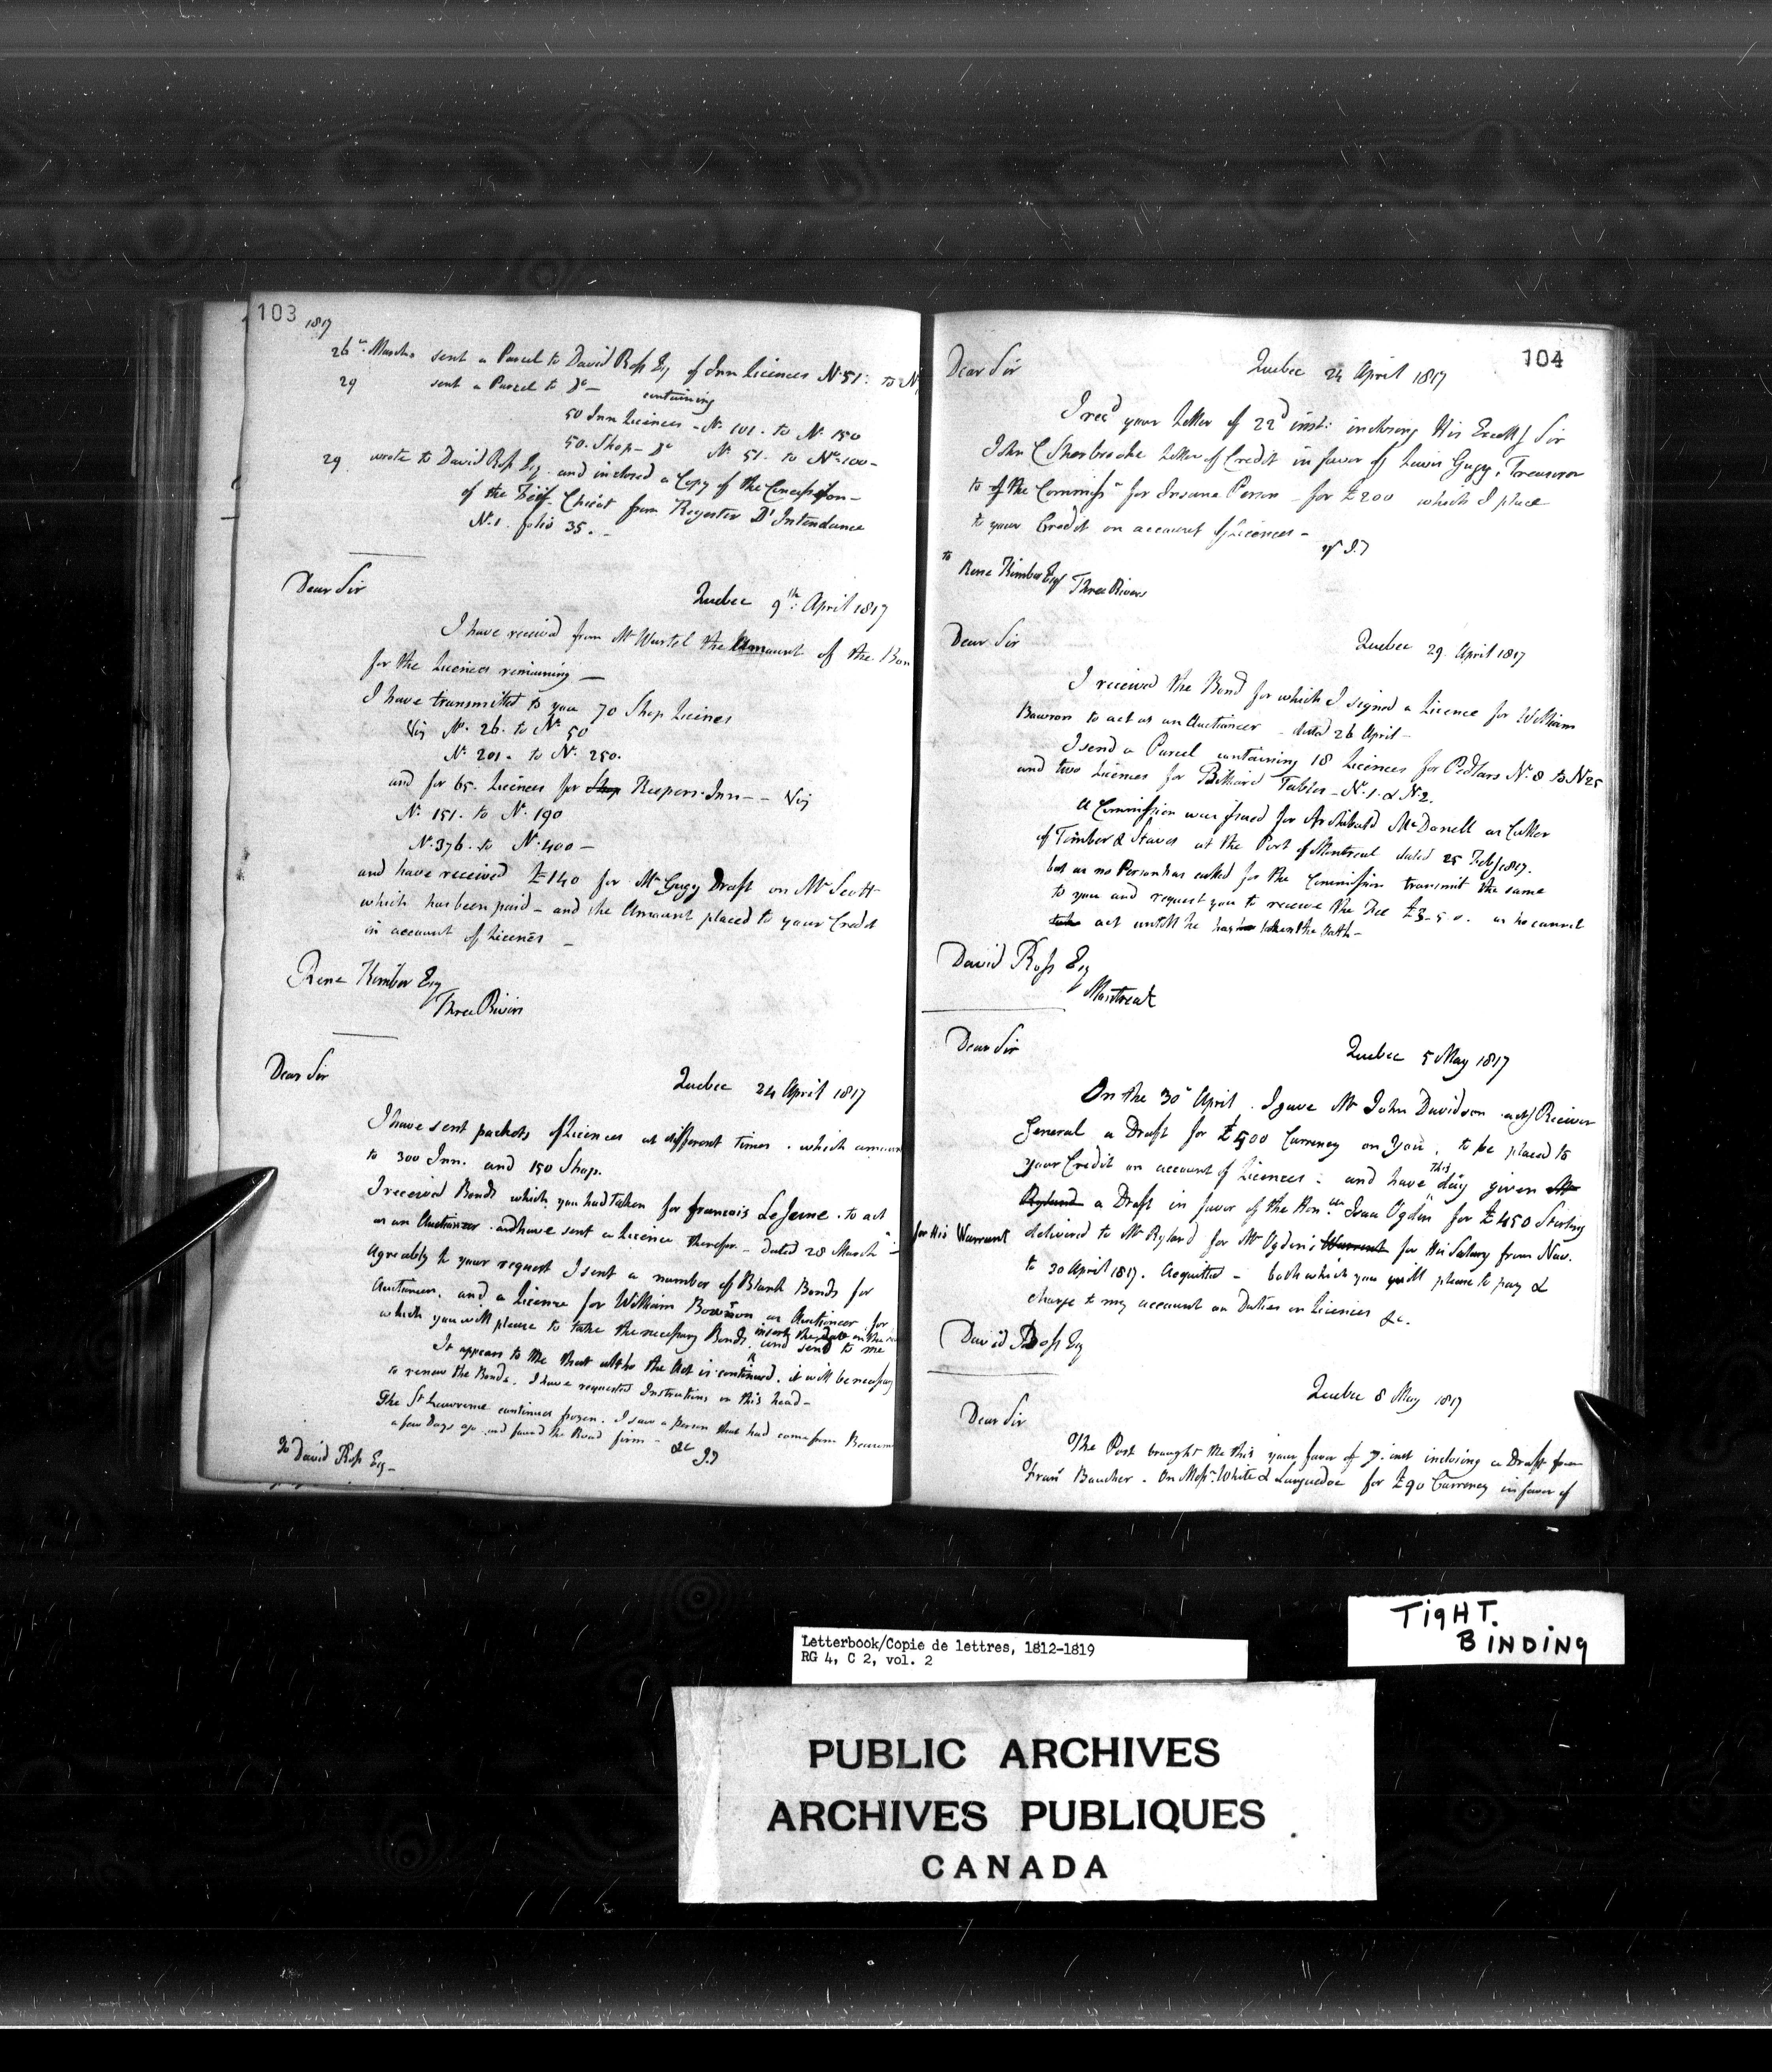 103
1817
26th March sent a Parcel to David Ross Esq of Inn Licences No. 51: to N
29 sent a Parcel to Do — containing
50 Inn Licences - No. 101. to No. 150
50. Shop - Do No. 51. to No. 100 -
29. wrote to David Ross Esq. and inclosed a Copy of the Concession -
of the Fief Chicot from Register D'Intendance
No. 1. folio 35. -
Dear Sir
Quebec 9th: April 1817
I have received from Mr Wurtel the Amount of the Bon
for the Licences remaining —
I have transmitted to you 70 Shop Licences
Viz No. 26. to No. 50
No. 201. to No. 250.
and for 65. Licences for Shop Keepers. Inn - - Viz
No. 151. to No. 190
No. 376. to No. 400 -
and have received £140 for Mr Gugy Draft on Mr Scott
which has been paid - and the Amount placed to your Credit
in account of Licences -
Rene Kimber Esq
Three Rivers
Dear Sir
Quebec 24 April 1817
I have sent packets of Licences at different times. which amoun
to 300 Inn. and 150 Shop.
I received Bonds which you had taken for francois LeJeune. to act
as an Auctioneer. and have sent a Licence therefor. - Dated 28 March
Agreably to your request I sent a number of Blank Bonds for
Auctioneers, and a Licence for William Bowron as Auctioneer. for
which you will please to take the necessary Bonds, insert the Date on the
and send to me
It appears to Me that altho the Act is continued. it will be necessary
to renew the Bonds. I have requested Instructions on this head -
The St Lawrence continues frozen. I saw a Person that had come from
a few Days ago and found the Road firm - &c
To David Ross Esq -
104
Dear Sir
Quebec 24 April 1817
I recd your Letter of 22d inst: inclosing His Excelly Sir
John C Sherbrooke Letter of Credit in favor of Lewis Gugy, Treasurer
to of the Commissrs for Insane Person - for £200 which I place
to your Credit on account of Licences -
to Rene Kimber Esqr
Three Rivers
Dear Sir
Quebec 29. April 1817
I received the Bond for which I signed a Licence for William
Bowron to act as an Auctioneer - dated 26 April -
I send a Parcel containing 18 Licences for Pedlars No. 8 to No 25
and two Licences for Billiard Tables - No. 1. & No. 2.
A Commission was issued for Archibald McDonell as Culler
of Timber & Staves at the Port of Montreal dated 25 Feby 1817.
but as no Person has called for the Commission transmit the same
to you and request you to receive the Fee £3-5 0. as he cannot
act untill he has taken the Oath -
David Ross Esq
Montreal
Dear Sir
Quebec 5 May 1817
On the 30 April. I gave Mr John Davidson actg Receiver
General a Draft for £500 Currency on You, to be placed to
your Credit on account of Licences: and have This day given Mr
Ryland a Draft in favor of the Honble Isaac Ogden for £450 Sterling
for His Warrant delivered to Mr Ryland for Mr Ogden's Warrant for His Salary from Nov.
to 30 April 1817. Acquitted - both which you will please to pay &
charge to my account on Duties on Licences &c.
David Ross Esq
Quebec 8 May 1817
Dear Sir
The Post brought Me this your favor of 7. inst inclosing a Draft from
Frans Boucher. On Messrs White & Languedoc for £90 Currency in favor of
TIGHT.
BINDING
Letterbook/Copie de lettres, 1812-1819
RG 4, C 2, vol. 2
PUBLIC ARCHIVES
ARCHIVES PUBLIQUES
CANADA